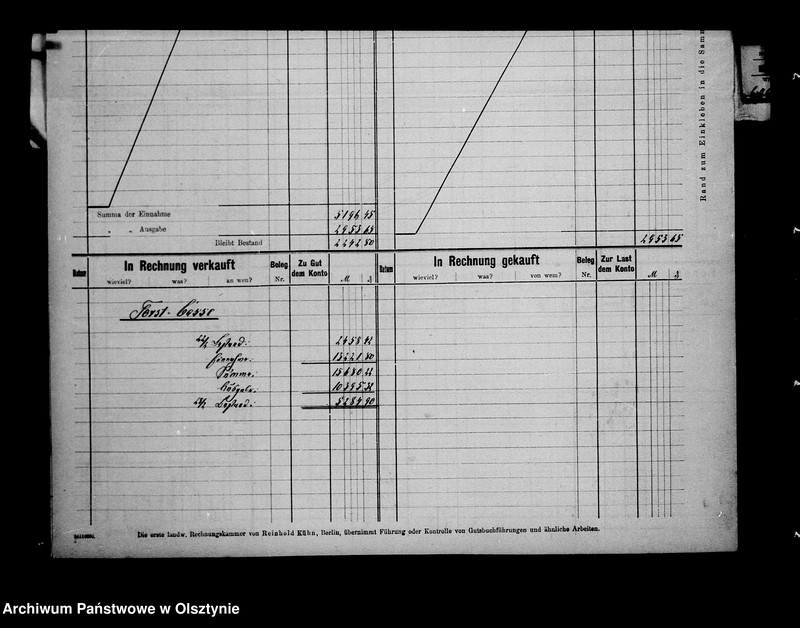 Rand zum Einkleben in die Samm
Summa der Einnahme 5196 45
" " Ausgabe 2953 65
Bleibt Bestand 2242 80
2953 65
Datum In Rechnung verkauft Beleg Zu Gut Datum In Rechnung gekauft Beleg Zur Last
wieviel? was? an wen? Nr. dem Konto M ₰ wieviel? was? von wem? Nr. dem Konto M ₰
Forst-Casse
Bestand: 2458 42
Einnahme: 13221 80
Summe: 15680 22
Ausgabe: 10395 32
Bestand: 5284 90
Die erste landw. Rechnungskammer von Reinhold Kühn, Berlin, übernimmt Führung oder Kontrolle von Gutsbuchführungen und ähnliche Arbeiten.
Archiwum Państwowe w Olsztynie